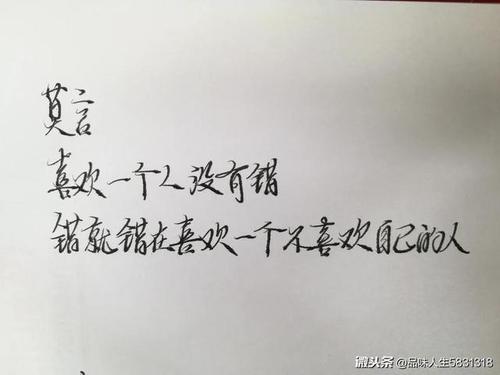 莫言
喜欢一个人没有错
错就错在喜欢一个不喜欢自己的人
微头条@品味人生5831318